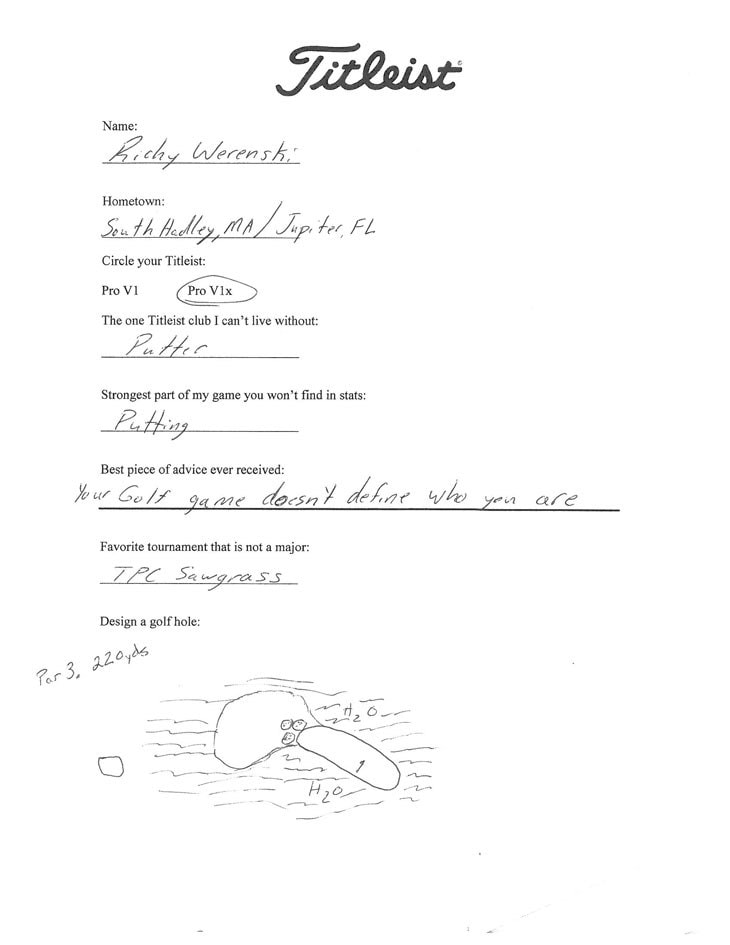 Titleist
Name:
Richy Werenski
Hometown:
South Hadley, MA / Jupiter, FL
Circle your Titleist:
Pro V1 Pro V1x
The one Titleist club I can't live without:
Putter
Strongest part of my game you won't find in stats:
Putting
Best piece of advice ever received:
Your Golf game doesn't define who you are
Favorite tournament that is not a major:
TPC Sawgrass
Design a golf hole:
Par 3. 220yds
H2O
1
H2O